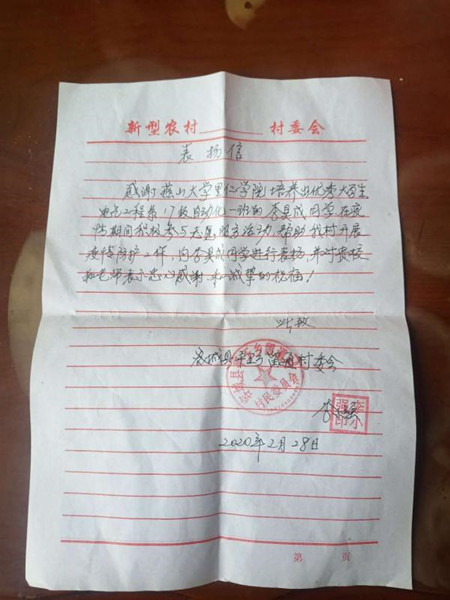 新型农村 村委会
表扬信
感谢燕山大学里仁学院培养出优秀大学生
电气工程系17级自动化一班的李昊成同学,在疫
情期间积极参与志愿服务活动,帮助我村开展
疫情防护工作,向李昊成同学进行表扬,并对贵校
和老师表示衷心感谢和诚挚的祝福!
此致
容城县平王乡留通村委会
村民委员会
2020年2月28日
第 页